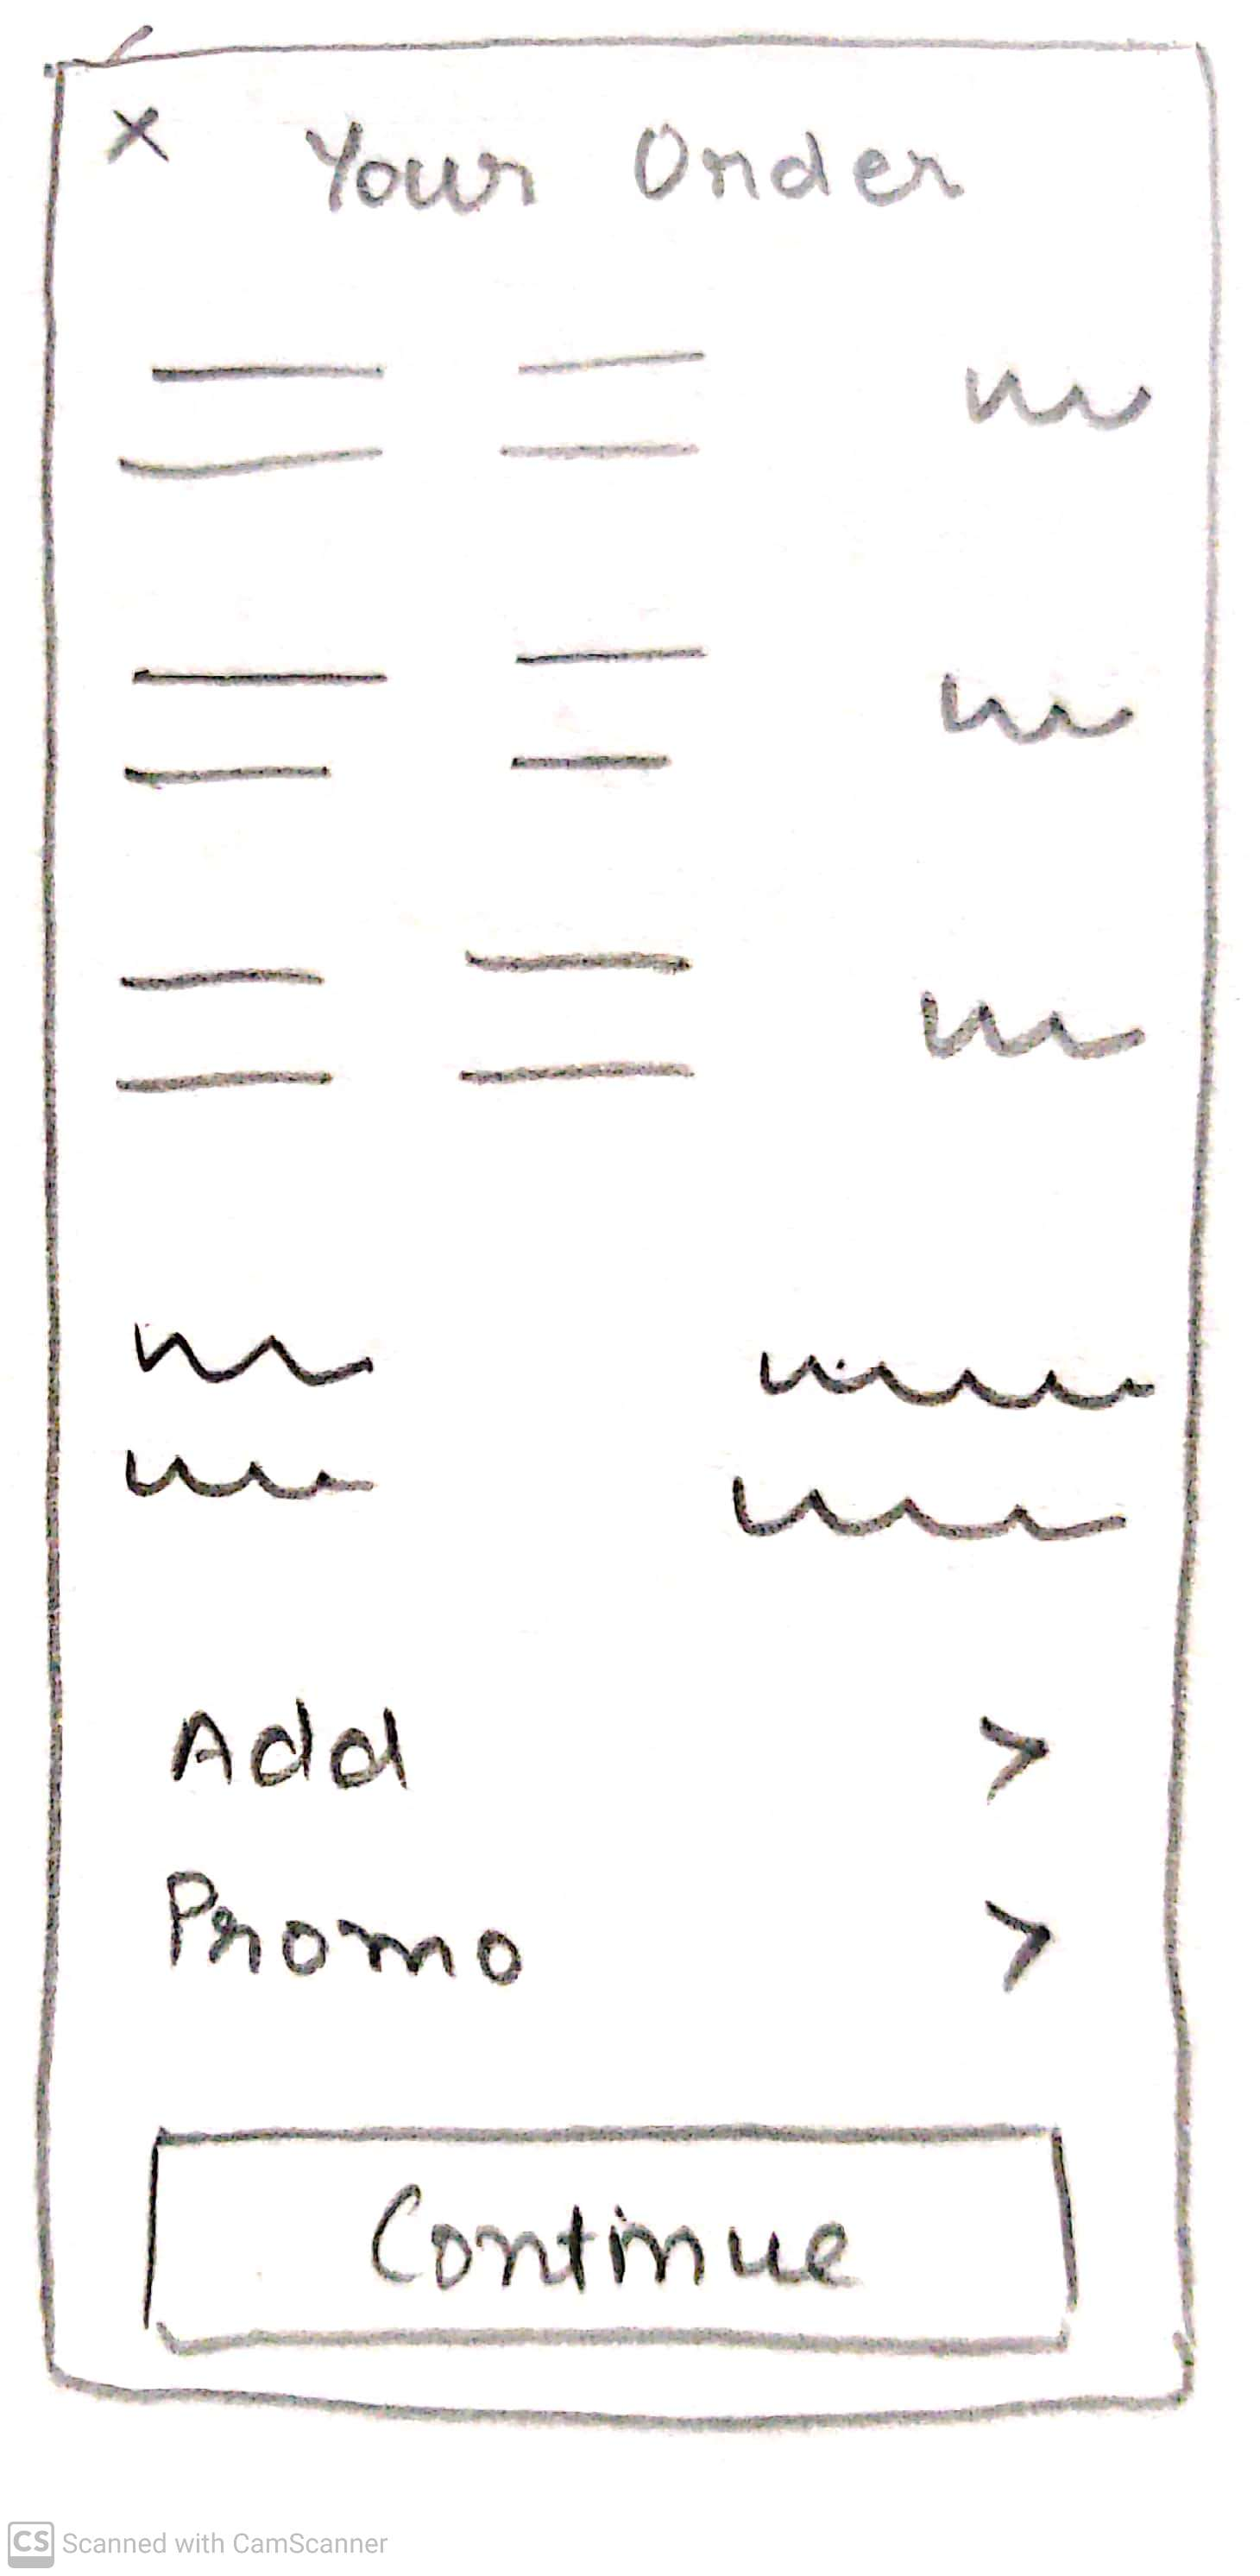 × Your Order
Add >
Promo >
Continue
CS Scanned with CamScanner